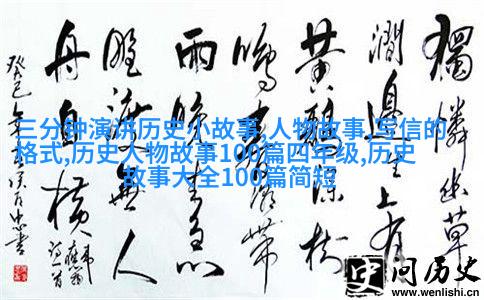 獨憐幽草
澗邊生上有
黄鸝深树
鳴春潮带
雨晚来急
野渡無人
舟自横
三分钟演讲历史小故事,人物故事,写信的
格式,历史人物故事100篇四年级,历史
故事大全100篇简短
史问历史
www.wenlishi.cn